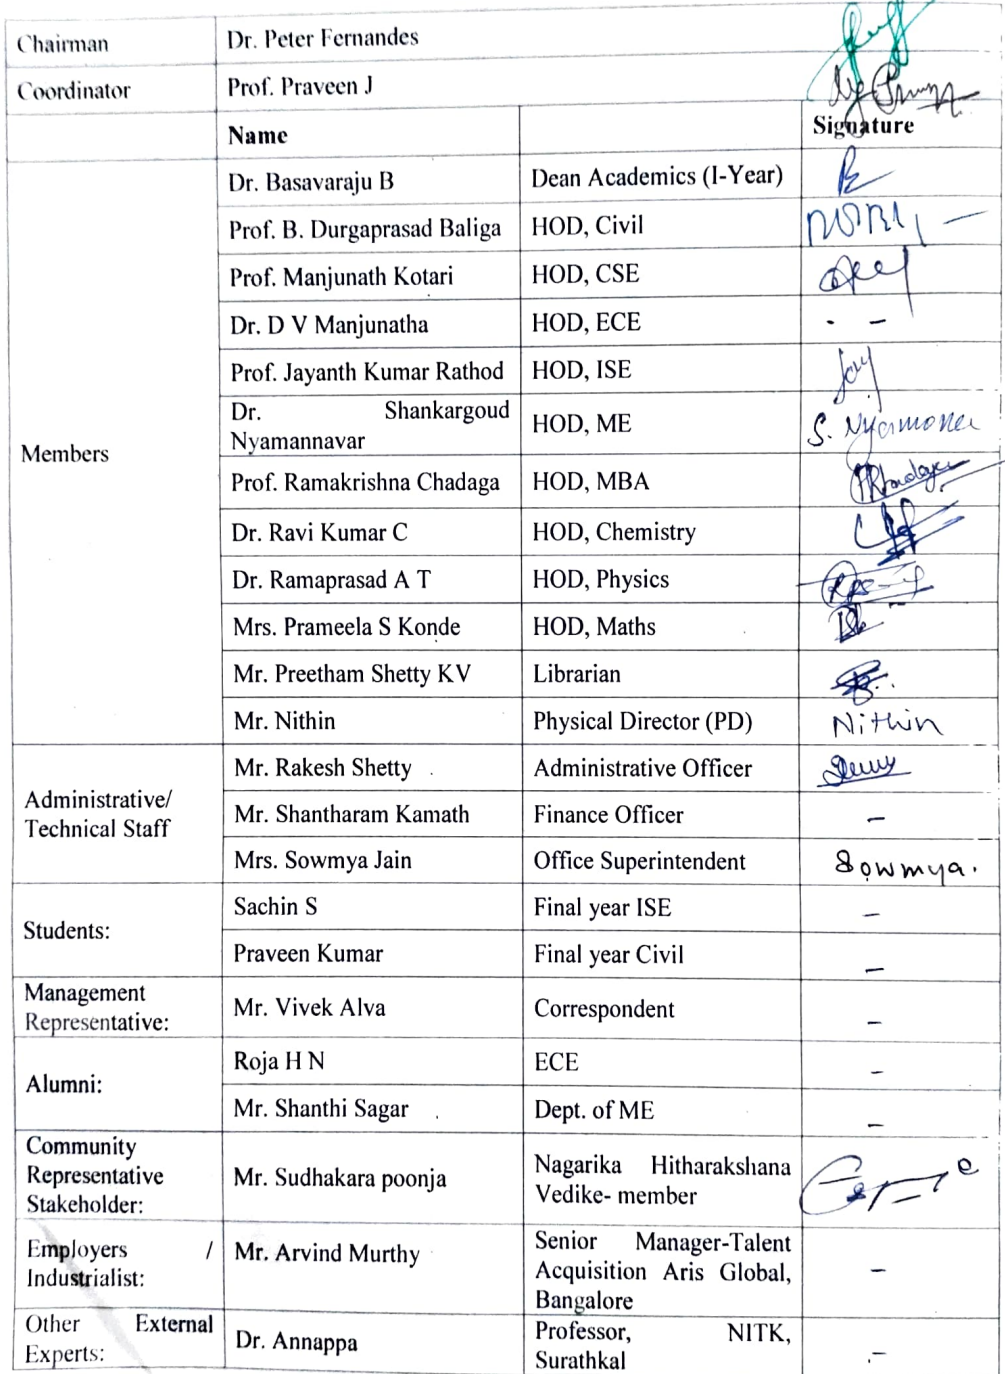 Chairman Dr. Peter Fernandes
Coordinator Prof. Praveen J
Name Signature
Members
Dr. Basavaraju B Dean Academics (I-Year)
Prof. B. Durgaprasad Baliga HOD, Civil
Prof. Manjunath Kotari HOD, CSE
Dr. D V Manjunatha HOD, ECE - -
Prof. Jayanth Kumar Rathod HOD, ISE
Dr. Shankargoud
Nyamannavar HOD, ME
Prof. Ramakrishna Chadaga HOD, MBA
Dr. Ravi Kumar C HOD, Chemistry
Dr. Ramaprasad A T HOD, Physics
Mrs. Prameela S Konde HOD, Maths
Mr. Preetham Shetty KV Librarian
Mr. Nithin Physical Director (PD) Nithin
Administrative/
Technical Staff
Mr. Rakesh Shetty Administrative Officer
Mr. Shantharam Kamath Finance Officer -
Mrs. Sowmya Jain Office Superintendent Sowmya.
Students:
Sachin S Final year ISE -
Praveen Kumar Final year Civil -
Management
Representative:
Mr. Vivek Alva Correspondent -
Alumni:
Roja H N ECE -
Mr. Shanthi Sagar Dept. of ME -
Community
Representative
Stakeholder:
Mr. Sudhakara poonja
Nagarika Hitharakshana
Vedike- member
Employers /
Industrialist:
Mr. Arvind Murthy
Senior Manager-Talent
Acquisition Aris Global,
Bangalore
-
Other External
Experts:
Dr. Annappa
Professor, NITK,
Surathkal
-